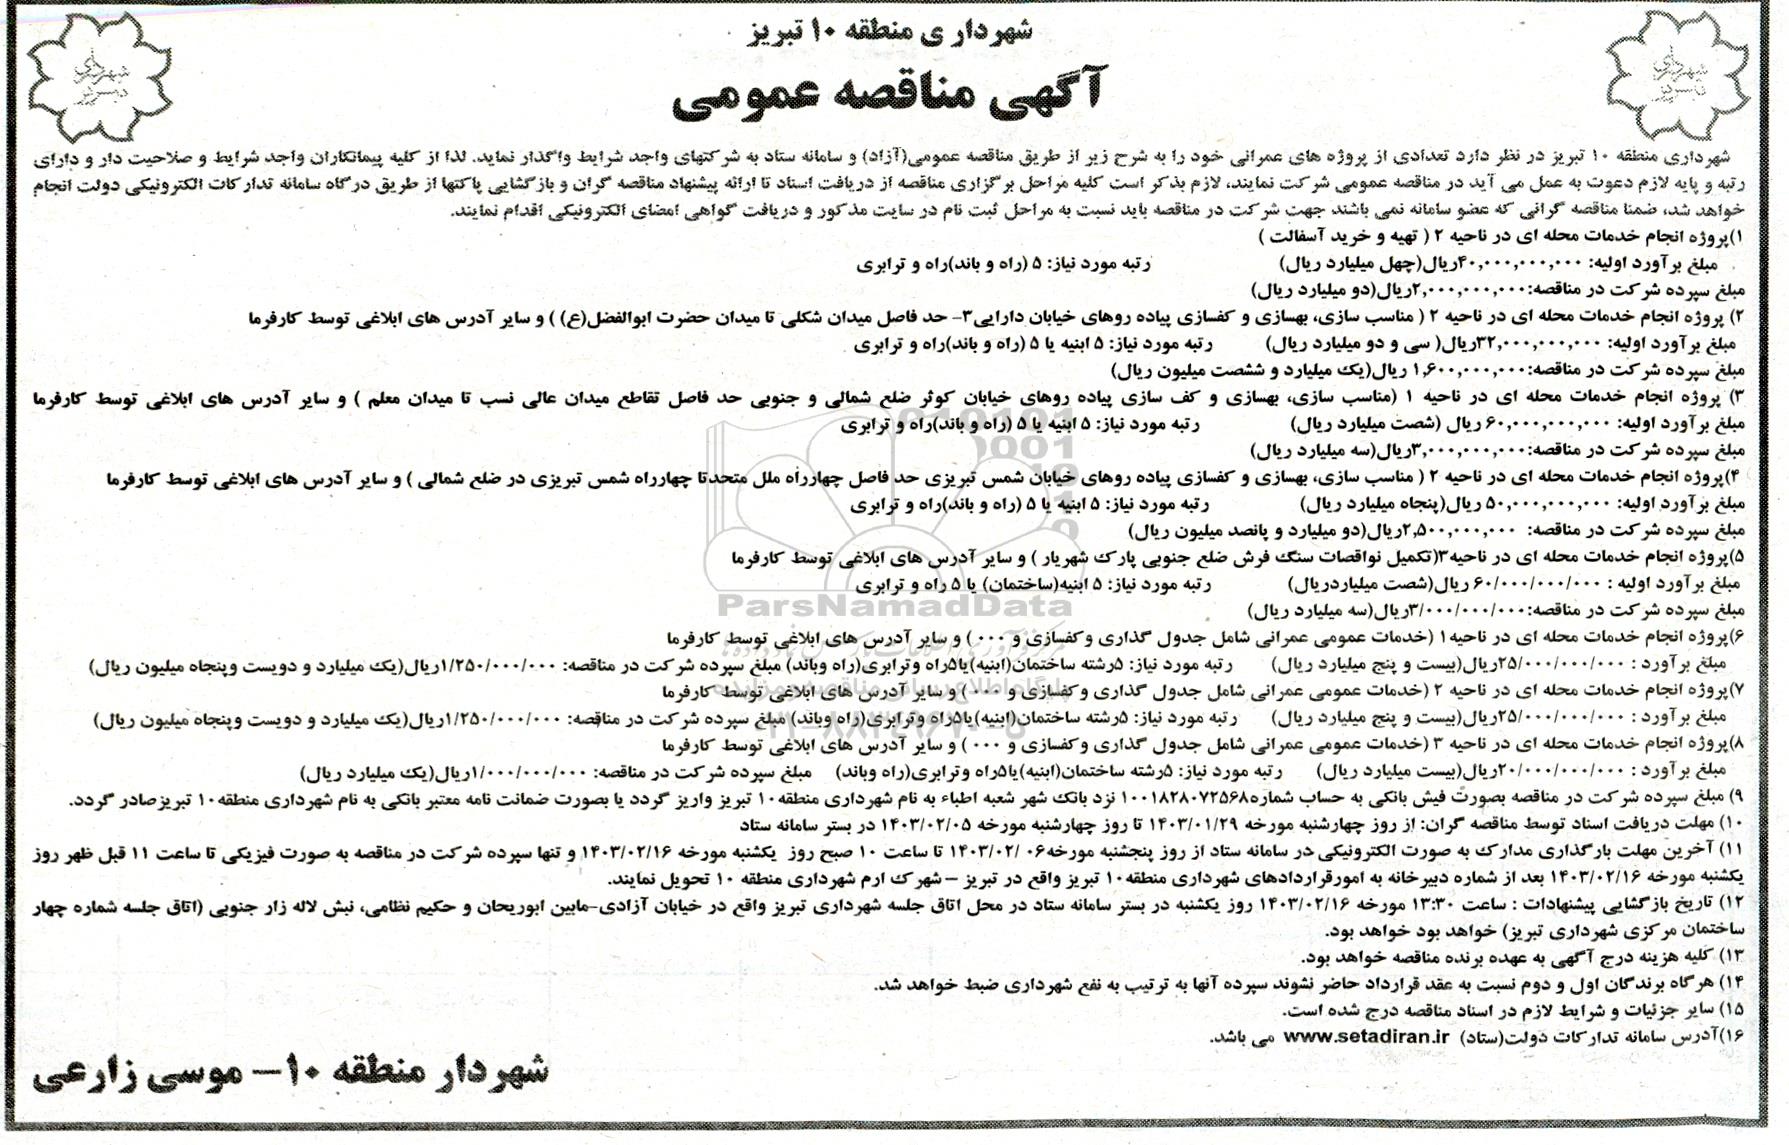 شهرداری منطقه ۱۰ تبریز
آگهی مناقصه عمومی
شهرداری تبریز
شهرداری تبریز
شهرداری منطقه ۱۰ تبریز در نظر دارد تعدادی از پروژه های عمرانی خود را به شرح زیر از طریق مناقصه عمومی(آزاد) و سامانه ستاد به شرکتهای واجد شرایط واگذار نماید. لذا از کلیه پیمانکاران واجد شرایط و صلاحیت دار و دارای
رتبه و پایه لازم دعوت به عمل می آید در مناقصه عمومی شرکت نمایند، لازم بذکر است کلیه مراحل برگزاری مناقصه از دریافت اسناد تا ارائه پیشنهاد مناقصه گران و بازگشایی پاکتها از طریق درگاه سامانه تدارکات الکترونیکی دولت انجام
خواهد شد، ضمنا مناقصه گرانی که عضو سامانه نمی باشند جهت شرکت در مناقصه باید نسبت به مراحل ثبت نام در سایت مذکور و دریافت گواهی امضای الکترونیکی اقدام نمایند.
۱)پروژه انجام خدمات محله ای در ناحیه ۲ ( تهیه و خرید آسفالت )
مبلغ برآورد اولیه: ۴۰,۰۰۰,۰۰۰,۰۰۰ریال(چهل میلیارد ریال) رتبه مورد نیاز: ۵ (راه و باند)راه و ترابری
مبلغ سپرده شرکت در مناقصه:۲,۰۰۰,۰۰۰,۰۰۰ریال(دو میلیارد ریال)
۲) پروژه انجام خدمات محله ای در ناحیه ۲ ( مناسب سازی، بهسازی و کفسازی پیاده روهای خیابان دارایی۳- حد فاصل میدان شکلی تا میدان حضرت ابوالفضل(ع) ) و سایر آدرس های ابلاغی توسط کارفرما
مبلغ برآورد اولیه: ۳۲,۰۰۰,۰۰۰,۰۰۰ریال( سی و دو میلیارد ریال) رتبه مورد نیاز: ۵ ابنیه یا ۵ (راه و باند)راه و ترابری
مبلغ سپرده شرکت در مناقصه:۱,۶۰۰,۰۰۰,۰۰۰ ریال(یک میلیارد و ششصت میلیون ریال)
۳) پروژه انجام خدمات محله ای در ناحیه ۱ (مناسب سازی، بهسازی و کف سازی پیاده روهای خیابان کوثر ضلع شمالی و جنوبی حد فاصل تقاطع میدان عالی نسب تا میدان معلم ) و سایر آدرس های ابلاغی توسط کارفرما
مبلغ برآورد اولیه: ۶۰,۰۰۰,۰۰۰,۰۰۰ ریال (شصت میلیارد ریال) رتبه مورد نیاز: ۵ ابنیه یا ۵ (راه و باند)راه و ترابری
مبلغ سپرده شرکت در مناقصه:۳,۰۰۰,۰۰۰,۰۰۰ریال(سه میلیارد ریال)
۴)پروژه انجام خدمات محله ای در ناحیه ۲ ( مناسب سازی، بهسازی و کفسازی پیاده روهای خیابان شمس تبریزی حد فاصل چهارراه ملل متحدتا چهارراه شمس تبریزی در ضلع شمالی ) و سایر آدرس های ابلاغی توسط کارفرما
مبلغ برآورد اولیه: ۵۰,۰۰۰,۰۰۰,۰۰۰ ریال(پنجاه میلیارد ریال) رتبه مورد نیاز: ۵ ابنیه یا ۵ (راه و باند)راه و ترابری
مبلغ سپرده شرکت در مناقصه: ۲,۵۰۰,۰۰۰,۰۰۰ریال(دو میلیارد و پانصد میلیون ریال)
۵)پروژه انجام خدمات محله ای در ناحیه۳(تکمیل نواقصات سنگ فرش ضلع جنوبی پارک شهریار ) و سایر آدرس های ابلاغی توسط کارفرما
مبلغ برآورد اولیه : ۶۰/۰۰۰/۰۰۰/۰۰۰ ریال(شصت میلیاردریال) رتبه مورد نیاز: ۵ ابنیه(ساختمان) یا ۵ راه و ترابری
مبلغ سپرده شرکت در مناقصه:۳/۰۰۰/۰۰۰/۰۰۰ریال(سه میلیارد ریال)
ParsNamadData
۶)پروژه انجام خدمات محله ای در ناحیه۱ (خدمات عمومی عمرانی شامل جدول گذاری وکفسازی و ۰۰۰ ) و سایر آدرس های ابلاغی توسط کارفرما
مبلغ برآورد : ۲۵/۰۰۰/۰۰۰/۰۰۰ریال(بیست و پنج میلیارد ریال) رتبه مورد نیاز: ۵رشته ساختمان(ابنیه)یا۵راه وترابری(راه وباند) مبلغ سپرده شرکت در مناقصه: ۱/۲۵۰/۰۰۰/۰۰۰ریال(یک میلیارد و دویست وپنجاه میلیون ریال)
۷)پروژه انجام خدمات محله ای در ناحیه ۲ (خدمات عمومی عمرانی شامل جدول گذاری وکفسازی و ۰۰۰ ) و سایر آدرس های ابلاغی توسط کارفرما
مبلغ برآورد : ۲۵/۰۰۰/۰۰۰/۰۰۰ریال(بیست و پنج میلیارد ریال) رتبه مورد نیاز: ۵رشته ساختمان(ابنیه)یا۵راه وترابری(راه وباند) مبلغ سپرده شرکت در مناقصه: ۱/۲۵۰/۰۰۰/۰۰۰ریال(یک میلیارد و دویست وپنجاه میلیون ریال)
۸)پروژه انجام خدمات محله ای در ناحیه ۳ (خدمات عمومی عمرانی شامل جدول گذاری وکفسازی و ۰۰۰ ) و سایر آدرس های ابلاغی توسط کارفرما
مبلغ برآورد : ۲۰/۰۰۰/۰۰۰/۰۰۰ریال(بیست میلیارد ریال) رتبه مورد نیاز: ۵رشته ساختمان(ابنیه)یا۵راه وترابری(راه وباند) مبلغ سپرده شرکت در مناقصه: ۱/۰۰۰/۰۰۰/۰۰۰ریال(یک میلیارد ریال)
۹) مبلغ سپرده شرکت در مناقصه بصورت فیش بانکی به حساب شماره۱۰۰۱۸۲۸۰۷۲۵۶۸ نزد بانک شهر شعبه اطباء به نام شهرداری منطقه۱۰ تبریز واریز گردد یا بصورت ضمانت نامه معتبر بانکی به نام شهرداری منطقه۱۰ تبریزصادر گردد.
۱۰) مهلت دریافت اسناد توسط مناقصه گران: از روز چهارشنبه مورخه ۱۴۰۳/۰۱/۲۹ تا روز چهارشنبه مورخه ۱۴۰۳/۰۲/۰۵ در بستر سامانه ستاد
۱۱) آخرین مهلت بارگذاری مدارک به صورت الکترونیکی در سامانه ستاد از روز پنجشنبه مورخه۰۶ /۱۴۰۳/۰۲ تا ساعت ۱۰ صبح روز یکشنبه مورخه ۱۴۰۳/۰۲/۱۶ و تنها سپرده شرکت در مناقصه به صورت فیزیکی تا ساعت ۱۱ قبل ظهر روز
یکشنبه مورخه ۱۴۰۳/۰۲/۱۶ بعد از شماره دبیرخانه به امورقراردادهای شهرداری منطقه۱۰ تبریز واقع در تبریز – شهرک ارم شهرداری منطقه ۱۰ تحویل نمایند.
۱۲) تاریخ بازگشایی پیشنهادات : ساعت ۱۳:۳۰ مورخه ۱۴۰۳/۰۲/۱۶ روز یکشنبه در بستر سامانه ستاد در محل اتاق جلسه شهرداری تبریز واقع در خیابان آزادی-مابین ابوریحان و حکیم نظامی، نبش لاله زار جنوبی (اتاق جلسه شماره چهار
ساختمان مرکزی شهرداری تبریز) خواهد بود خواهد بود.
۱۳) کلیه هزینه درج آگهی به عهده برنده مناقصه خواهد بود.
۱۴) هرگاه برندگان اول و دوم نسبت به عقد قرارداد حاضر نشوند سپرده آنها به ترتیب به نفع شهرداری ضبط خواهد شد.
۱۵) سایر جزئیات و شرایط لازم در اسناد مناقصه درج شده است.
۱۶)آدرس سامانه تدارکات دولت(ستاد) www.setadiran.ir می باشد.
شهردار منطقه ۱۰– موسی زارعی